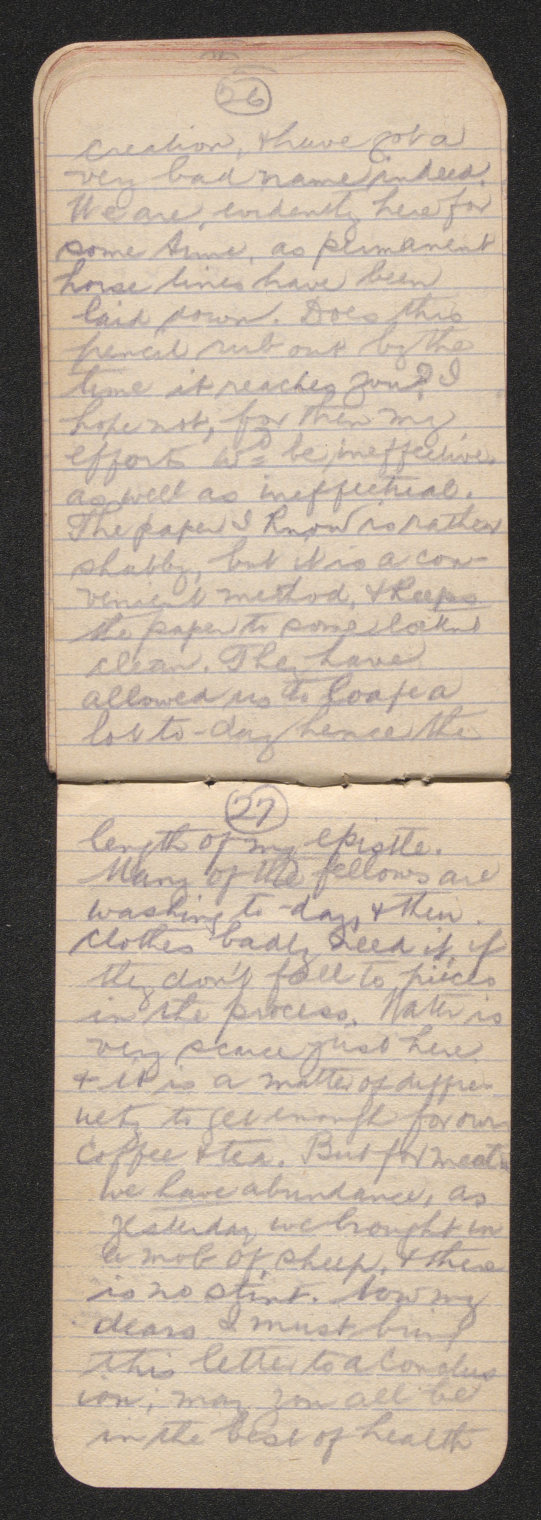 26
creation, & have got a
very bad name indeed.
We are, evidently here for
some time, as permanent
horse lines have been
laid down. Does this
pencil rub out by the
time it reaches you? I
hope not, for then my
efforts wd be ineffective,
as well as ineffectual.
The paper I know is rather
shabby, but it is a con-
venient method, & keeps
the paper to some extent
clean. They have
allowed us to loaf a
lot to-day hence the
27
length of my epistle.
Many of the fellows are
washing to-day, & their
clothes badly need it, if
they don't fall to pieces
in the process. Water is
very scarce just here
& it is a matter of diffi-
culty to get enough for our
coffee & tea. But for meat
we have abundance, as
yesterday we brought in
a mob of sheep, & there
is no stint. Now my
dears I must bring
this letter to a conclus
ion; may you all be
in the best of health